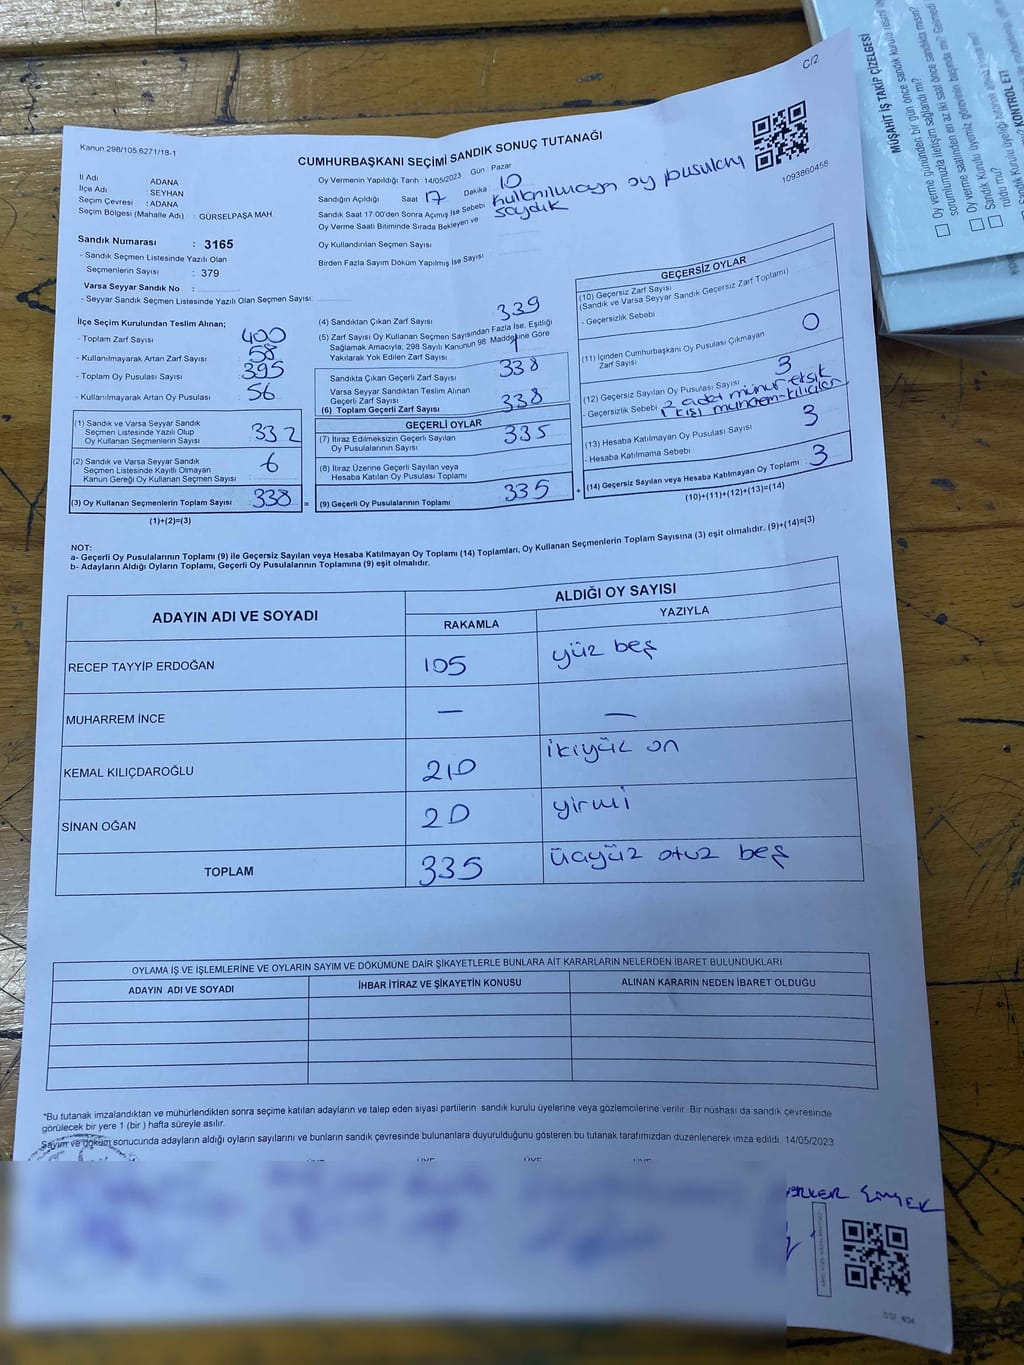 C/2
Kanun 298/105.6271/18-1
CUMHURBAŞKANI SEÇİMİ SANDIK SONUÇ TUTANAĞI
1093860458
İl Adı : ADANA
İlçe Adı : SEYHAN
Seçim Çevresi : ADANA
Seçim Bölgesi (Mahalle Adı) : GÜRSELPAŞA MAH.
Oy Vermenin Yapıldığı Tarih : 14/05/2023 Gün : Pazar
Sandığın Açıldığı Saat 17 Dakika 10
Sandık Saat 17.00'den Sonra Açımış İse Sebebi kullanılmayan oy pusulaını
saydık
Oy Verme Saati Bitiminde Sırada Bekleyen ve
Oy Kullandırılan Seçmen Sayısı
Birden Fazla Sayım Döküm Yapılmış İse Sayısı
Sandık Numarası : 3165
- Sandık Seçmen Listesinde Yazılı Olan
Seçmenlerin Sayısı : 379
Varsa Seyyar Sandık No :
- Seyyar Sandık Seçmen Listesinde Yazılı Olan Seçmen Sayısı:
İlçe Seçim Kurulundan Teslim Alınan;
- Toplam Zarf Sayısı 400
- Kullanılmayarak Artan Zarf Sayısı 58
- Toplam Oy Pusulası Sayısı 395
- Kullanılmayarak Artan Oy Pusulası 56
(1) Sandık ve Varsa Seyyar Sandık
Seçmen Listesinde Yazılı Olup
Oy Kullanan Seçmenlerin Sayısı 332
(2) Sandık ve Varsa Seyyar Sandık
Seçmen Listesinde Kayıtlı Olmayan
Kanun Gereği Oy Kullanan Seçmen Sayısı 6
(3) Oy Kullanan Seçmenlerin Toplam Sayısı 338 =
(1)+(2)=(3)
(4) Sandıktan Çıkan Zarf Sayısı 339
(5) Zarf Sayısı Oy Kullanan Seçmen Sayısından Fazla İse, Eşitliği
Sağlamak Amacıyla; 298 Sayılı Kanunun 98. Maddesine Göre
Yakılarak Yok Edilen Zarf Sayısı 1
Sandıkta Çıkan Geçerli Zarf Sayısı 338
Varsa Seyyar Sandıktan Teslim Alınan
Geçerli Zarf Sayısı
(6) Toplam Geçerli Zarf Sayısı 338
GEÇERLİ OYLAR
(7) İtiraz Edilmeksizin Geçerli Sayılan
Oy Pusulalarının Sayısı 335
(8) İtiraz Üzerine Geçerli Sayılan veya
Hesaba Katılan Oy Pusulası Toplamı
(9) Geçerli Oy Pusulalarının Toplamı 335 +
GEÇERSİZ OYLAR
(10) Geçersiz Zarf Sayısı
(Sandık ve Varsa Seyyar Sandık Geçersiz Zarf Toplamı)
- Geçersizlik Sebebi
(11) İçinden Cumhurbaşkanı Oy Pusulası Çıkmayan
Zarf Sayısı 0
(12) Geçersiz Sayılan Oy Pusulası Sayısı 3
- Geçersizlik Sebebi 2 adet mühür eksik
1 kişi muharrem-kılıçları
(13) Hesaba Katılmayan Oy Pusulası Sayısı 3
- Hesaba Katılmama Sebebi
(14) Geçersiz Sayılan veya Hesaba Katılmayan Oy Toplamı 3
(10)+(11)+(12)+(13)=(14)
NOT:
a- Geçerli Oy Pusulalarının Toplamı (9) ile Geçersiz Sayılan veya Hesaba Katılmayan Oy Toplamı (14) Toplamları, Oy Kullanan Seçmenlerin Toplam Sayısına (3) eşit olmalıdır. (9)+(14)=(3)
b- Adayların Aldığı Oyların Toplamı, Geçerli Oy Pusulalarının Toplamına (9) eşit olmalıdır.
ADAYIN ADI VE SOYADI ALDIĞI OY SAYISI
RAKAMLA YAZIYLA
RECEP TAYYİP ERDOĞAN 105 yüz beş
MUHARREM İNCE — —
KEMAL KILIÇDAROĞLU 210 ikiyüz on
SİNAN OĞAN 20 yirmi
TOPLAM 335 üçyüz otuz beş
OYLAMA İŞ VE İŞLEMLERİNE VE OYLARIN SAYIM VE DÖKÜMÜNE DAİR ŞİKAYETLERLE BUNLARA AİT KARARLARIN NELERDEN İBARET BULUNDUKLARI
ADAYIN ADI VE SOYADI İHBAR İTİRAZ VE ŞİKAYETİN KONUSU ALINAN KARARIN NEDEN İBARET OLDUĞU
*Bu tutanak imzalandıktan ve mühürlendikten sonra seçime katılan adayların ve talep eden siyasi partilerin sandık kurulu üyelerine veya gözlemcilerine verilir. Bir nüshası da sandık çevresinde
görülecek bir yere 1 (bir) hafta süreyle asılır.
Sayım ve döküm sonucunda adayların aldığı oyların sayılarını ve bunların sandık çevresinde bulunanlara duyurulduğunu gösteren bu tutanak tarafımızdan düzenlenerek imza edildi. 14/05/2023
ÜYE ÜYE ÜYE ÜYE
ŞİMŞEK
MÜŞAHİT İŞ TAKİP ÇİZELGESİ
Oy verme gününden bir gün önce sandık kurulu
sorumlumuzla iletişim sağlandı mı?
Oy verme saatinden en az iki saat önce sandıkta mısın?
Sandık Kurulu üyemiz görevinin başında mı?
KONTROL ET!